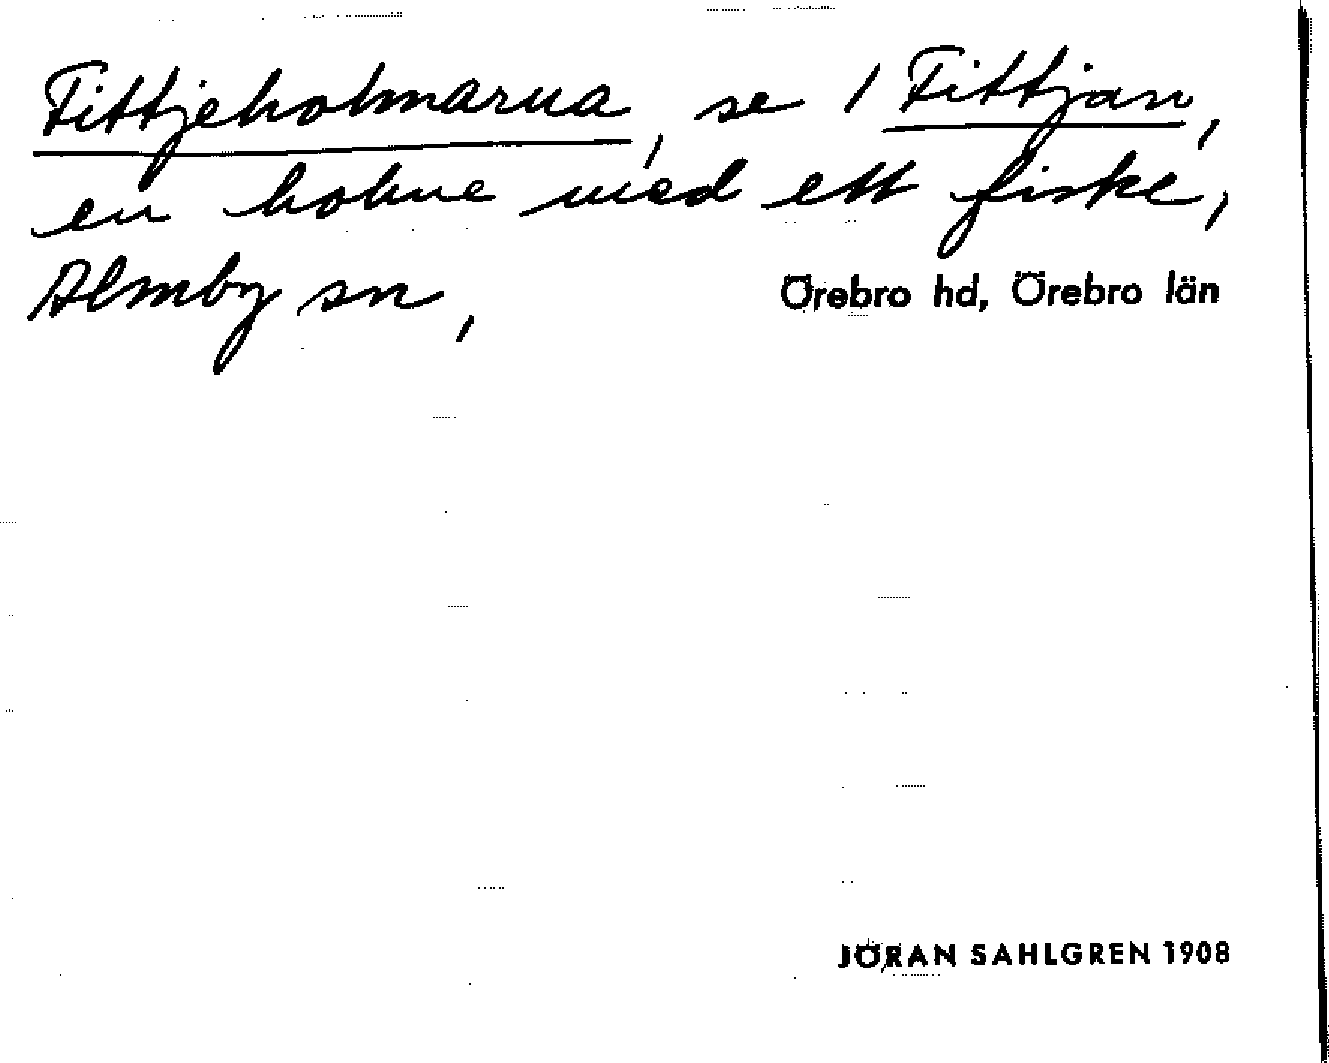 Fittjeholmarna, se / Fittjan,
en holme med ett fiske,
Almby sn, Örebro hd, Örebro län
JÖRAN SAHLGREN 1908